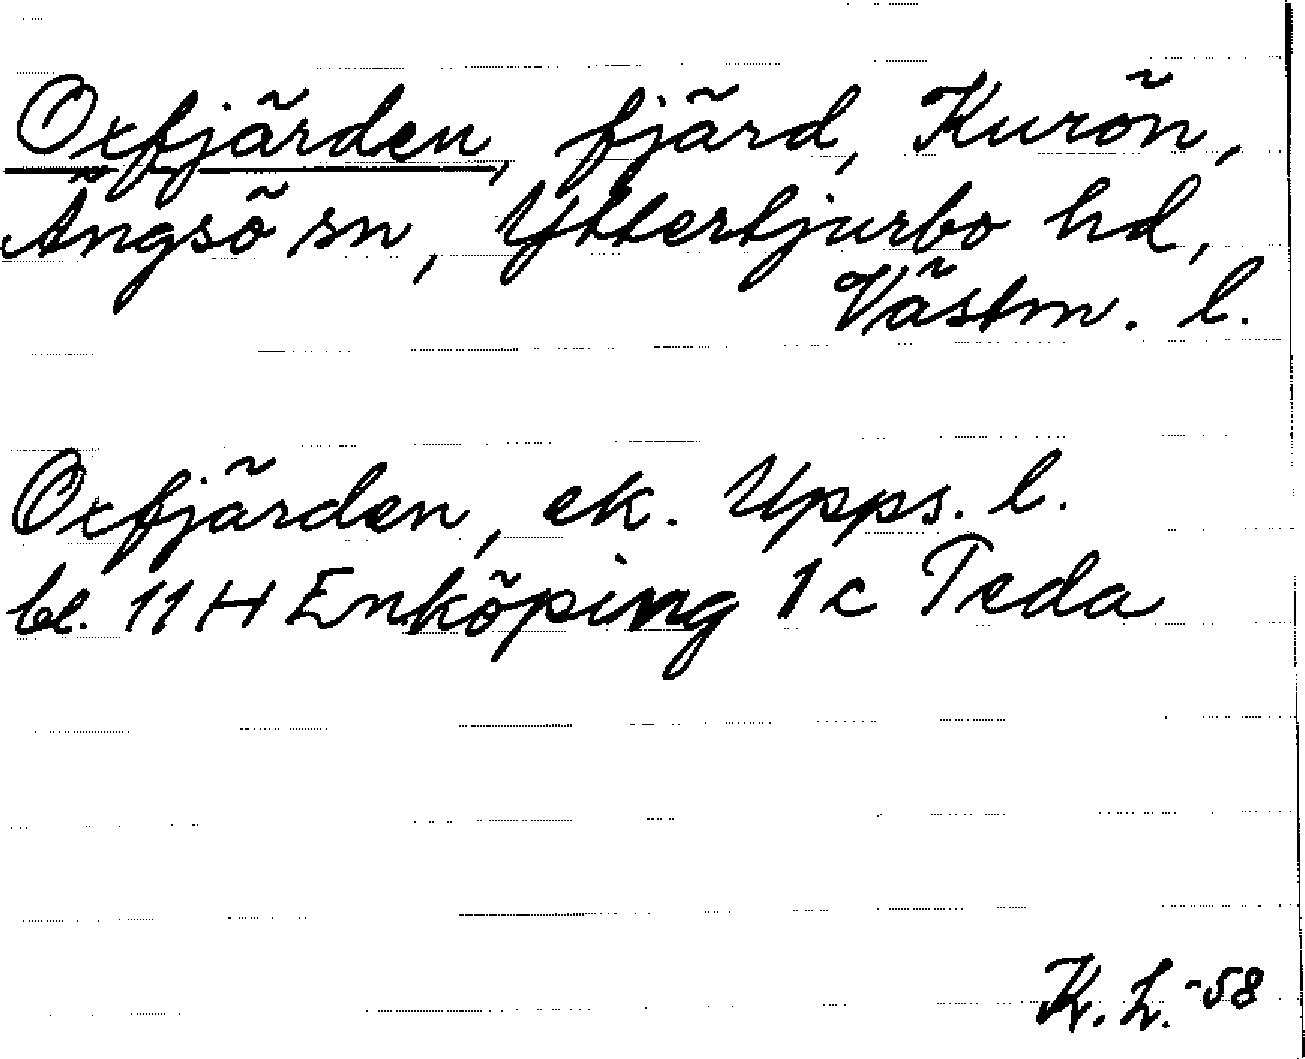 Oxfjärden, fjärd, Kurön,
Ängsö sn, Yttertjurbo hd,
Västm. l.
Oxfjärden, ek. Upps. l.
bl. 11 H Enköping 1 c Teda
K. L. -58